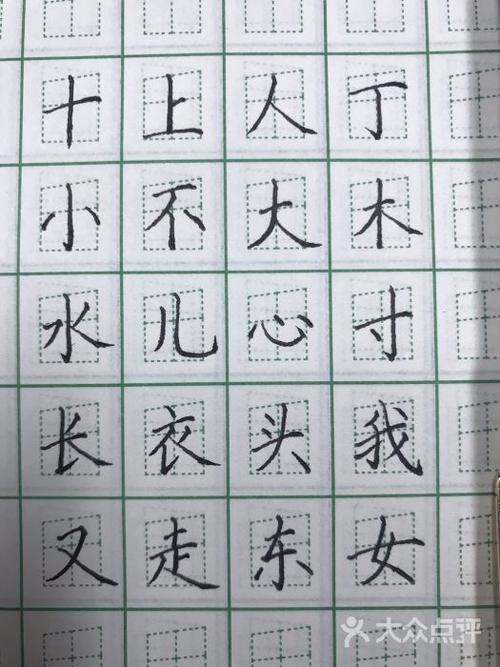 十上人丁
小不大木
水儿心寸
长衣头我
又走东女
大众点评